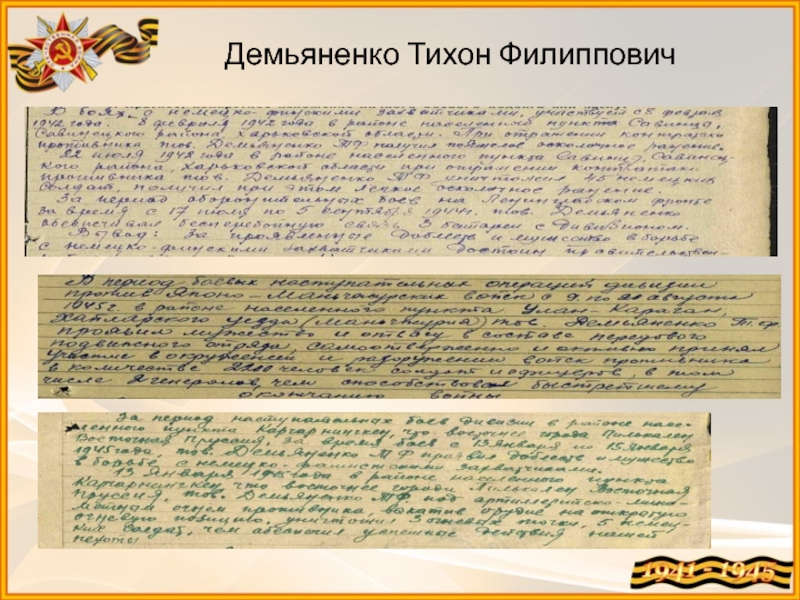 Демьяненко Тихон Филиппович
В боях с немецко-финскими захватчиками, участвует с 8 февраля
1942 года. 8 февраля 1942 года в районе населенного пункта Савинца,
Савинецкого района Харьковской области. При отражении контратаки
противника тов. Демьяненко ТФ получил тяжелое осколочное ранение.
22 июля 1942 года в районе населенного пункта Савинц, Савинец-
кого района, Харьковской области при отражении контратаки
противника тов. Демьяненко ТФ уничтожил 45 немецких
солдат, получил при этом легкое осколочное ранение.
За период оборонительных боев на Ленинградском фронте
за время с 17 июля по 5 сентября 1944г. тов. Демьяненко
обеспечивал бесперебойную связь 3 батареи с дивизионом.
Вывод: За проявленные доблесть и мужество в борьбе
с немецко-финскими захватчиками достоин правительствен-
В период боевых наступательных операций дивизии
против Японо-Маньчжурских войск с 9 по 20 августа
1945г. в районе населенного пункта Улан-
уезда (Маньчжурия) тов. Демьяненко Т.Ф.
проявил мужество и отвагу в составе передового
подвижного отряда, самоотверженно и активно принял
участие в окружении и разоружении войск противника
в количестве 2200 человек солдат и офицеров, в том
числе 2 генералов, чем способствовал быстрейшему
окончанию войны
За период наступательных боев дивизии в районе насе-
ленного пункта что восточнее города Пилькален
Восточная Пруссия, за время боев с 13 января по 15 января
1945 года, тов. Демьяненко ТФ проявил доблесть и мужество
в борьбе с немецко-фашистскими захватчиками.
13 января 1945 года в районе населенного пункта
что восточнее города Пилькален Восточная
Пруссия, тов. Демьяненко ТФ под артиллерийско-мино-
метным огнем противника, выкатив орудие на открытую
огневую позицию, уничтожил 3 огневых точки, 5 немец-
ких солдат, чем обеспечил успешные действия нашей
пехоты
1941 - 1945